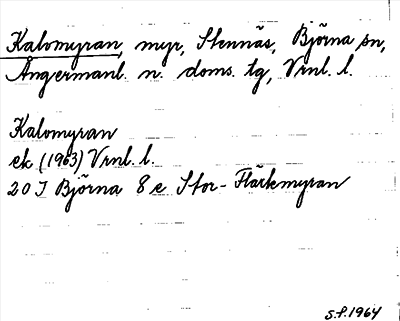 Kalomyran, myr, Stennäs, Björna sn,
Ångermanl. n. doms. tg, Vrnl. l.
Kalomyran
ek (1963) Vrnl. l.
20 I Björna 8 e Stor-Flärkmyran
S.F. 1964